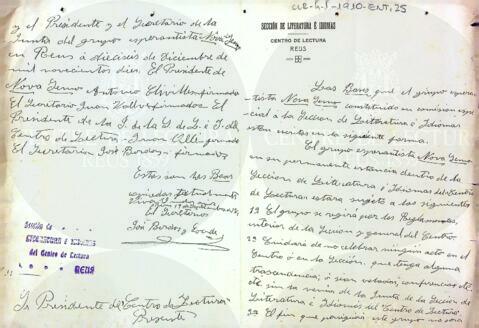 CLR-L.I-1910-ENT,25
SECCIÓN DE LITERATURA É IDIOMAS
CENTRO DE LECTURA
REUS
Las Bases que el grupo espe-
rantista Nova Semo constituido en comisión espe-
cial á la Sección de Literatura é Idiomas
están escritas en la siguiente forma.
El grupo esperantista Nova Semo
en su permanente estancia dentro de la
Sección de Literatura é Idiomas del Centro
de Lectura estará sujeto á las siguientes
1ª El grupo se regirá por los Reglamentos
interior de la Sección y general del Centro
2ª Cuidará de no celebrar ningún acto en el
Centro ó en la Sección, que tenga alguna
trascendencia; ó sean veladas, conferencias etc.
etc. sin la venia de la Junta de la Sección de
Literatura é Idiomas del Centro de Lectura
3ª El fin que persiguirá este grupo no será
y el Presidente y el Secretario de la
Junta del grupo esperantista Nova Semo
en Reus á dieciséis de Diciembre de
mil novecientos diez. El Presidente de
Nova Semo Antonio firmados El
Secretario Juan firmados El
Presidente de la J. de la S. de L. é I. del
Centro de Lectura = Juan firmado
El Secretario José Bordas = firmados
Estas son las Bases
copiadas textualmente
El Secretario
José Bordas
Sección de
LITERATURA É IDIOMAS
del Centro de Lectura
REUS
Sr. Presidente del Centro de Lectura
Presente